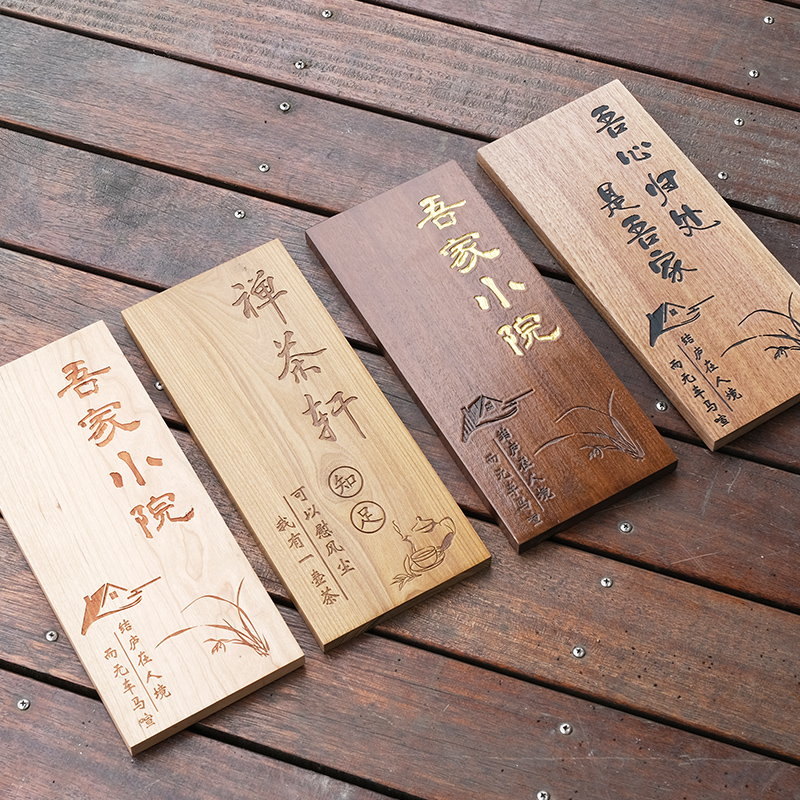 吾家小院
结庐在人境
而无车马喧
禅茶轩
知足
可以慰风尘
我有一壶茶
吾家小院
结庐在人境
而无车马喧
吾心归处
是吾家
结庐在人境
而无车马喧